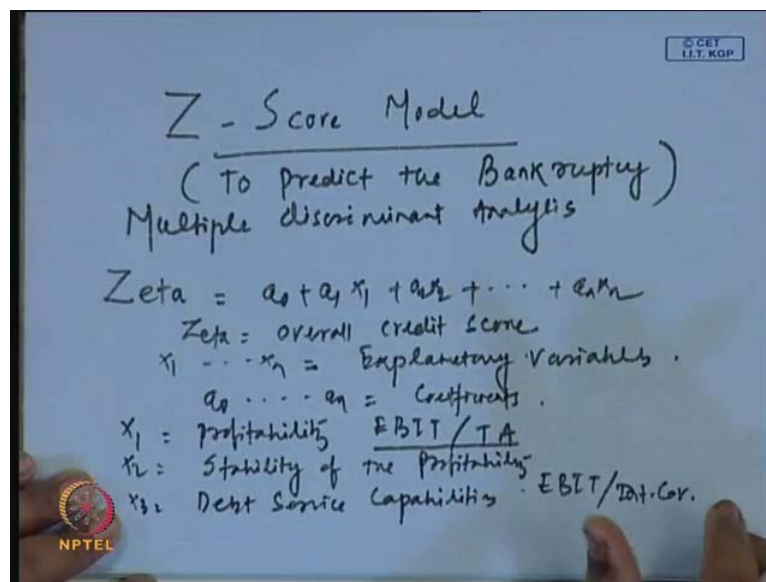 © CET
I.I.T. KGP
Z - Score Model
( To Predict the Bankruptcy )
Multiple discriminant Analysis
Zeta = a0 + a1 x1 + a2x2 + ... + anxn
Zeta = overall credit score
x1 ... xn = Explanatory Variables .
a0 ..... an = Coefficients .
x1 = Profitability EBIT / TA
x2 = Stability of the Profitability
x3 = Debt Service Capabilities . EBIT/Int. Cov.
NPTEL